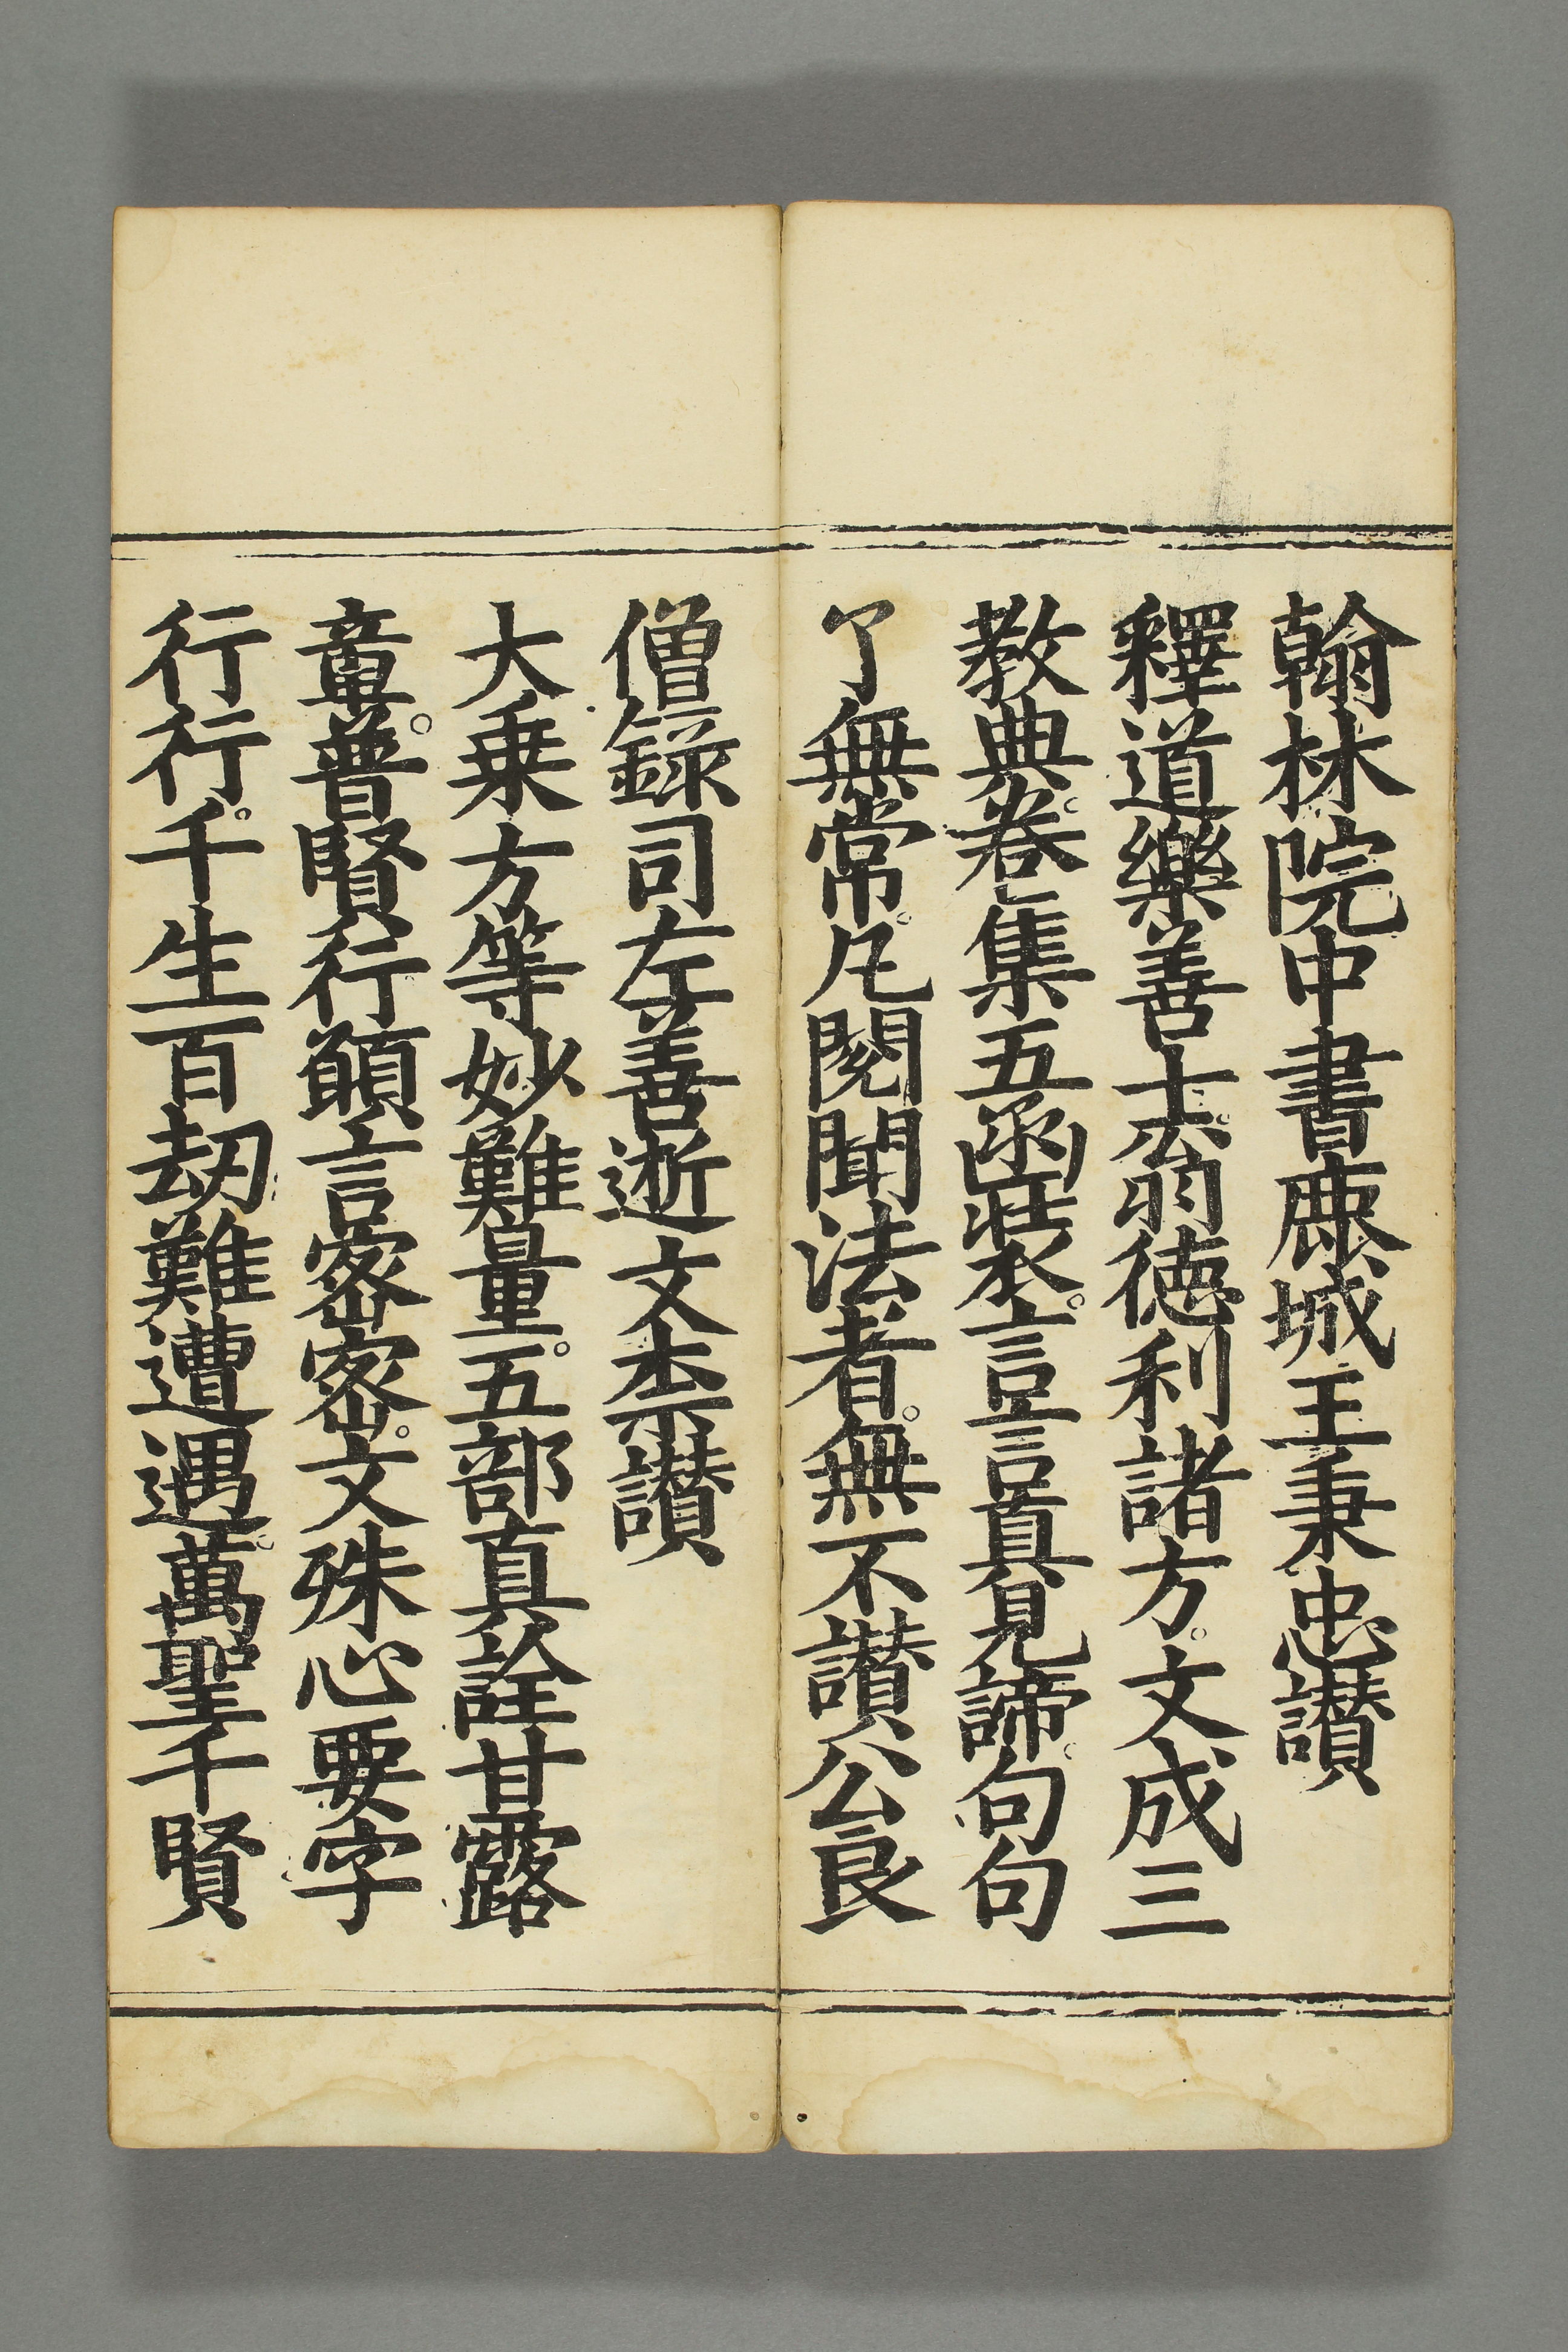 翰林院中書鹿城王秉忠讃
釋道樂善士。翁德利諸方。文成三
教典。卷集五函裝。言言眞見諦。句句
了無常。凡閱聞法者。無不讃公良
僧録司左善逝文柰讃
大乗方等妙難量。五部真詮甘露
章。普賢行願言密密。文殊心要字
行行。千生百劫難遭遇。萬聖千賢